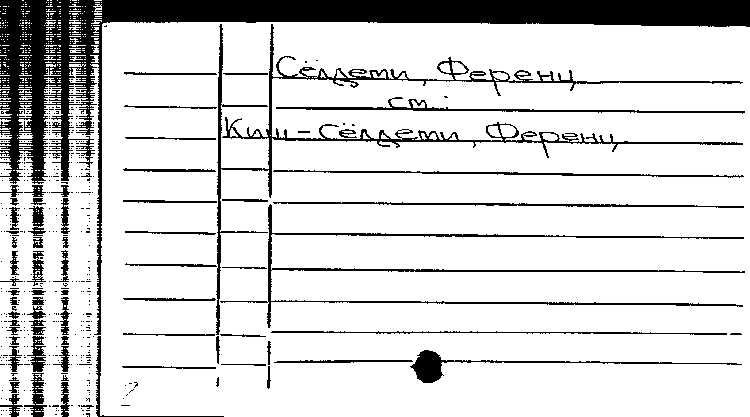 Сёлдеми, Ференц
см.:
Киш-Сёлдеми, Ференц